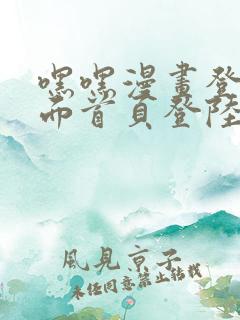 嘿嘿漫畫登
而首頁登陸
風見京子
未任同意禁止轉載